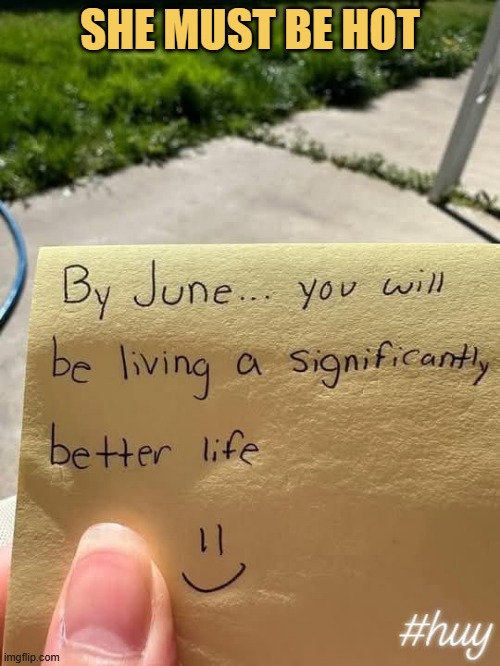 SHE MUST BE HOT
By June... you will
be living a significantly
better life
#huy
imgflip.com